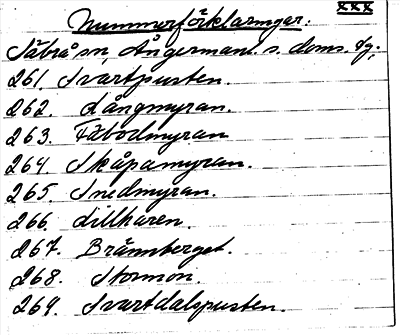 xxx
Nummerförklaringar.
Säbrå sn, Ångermanl. s. doms. dg;
261. Svartpusten.
262. Långmyran.
263. Fäbodmyran
264. Skåpamyran.
265. Snedmyran.
266. Lillharen.
267. Brännberget.
268. Stormon.
269. Svartdalspusten.